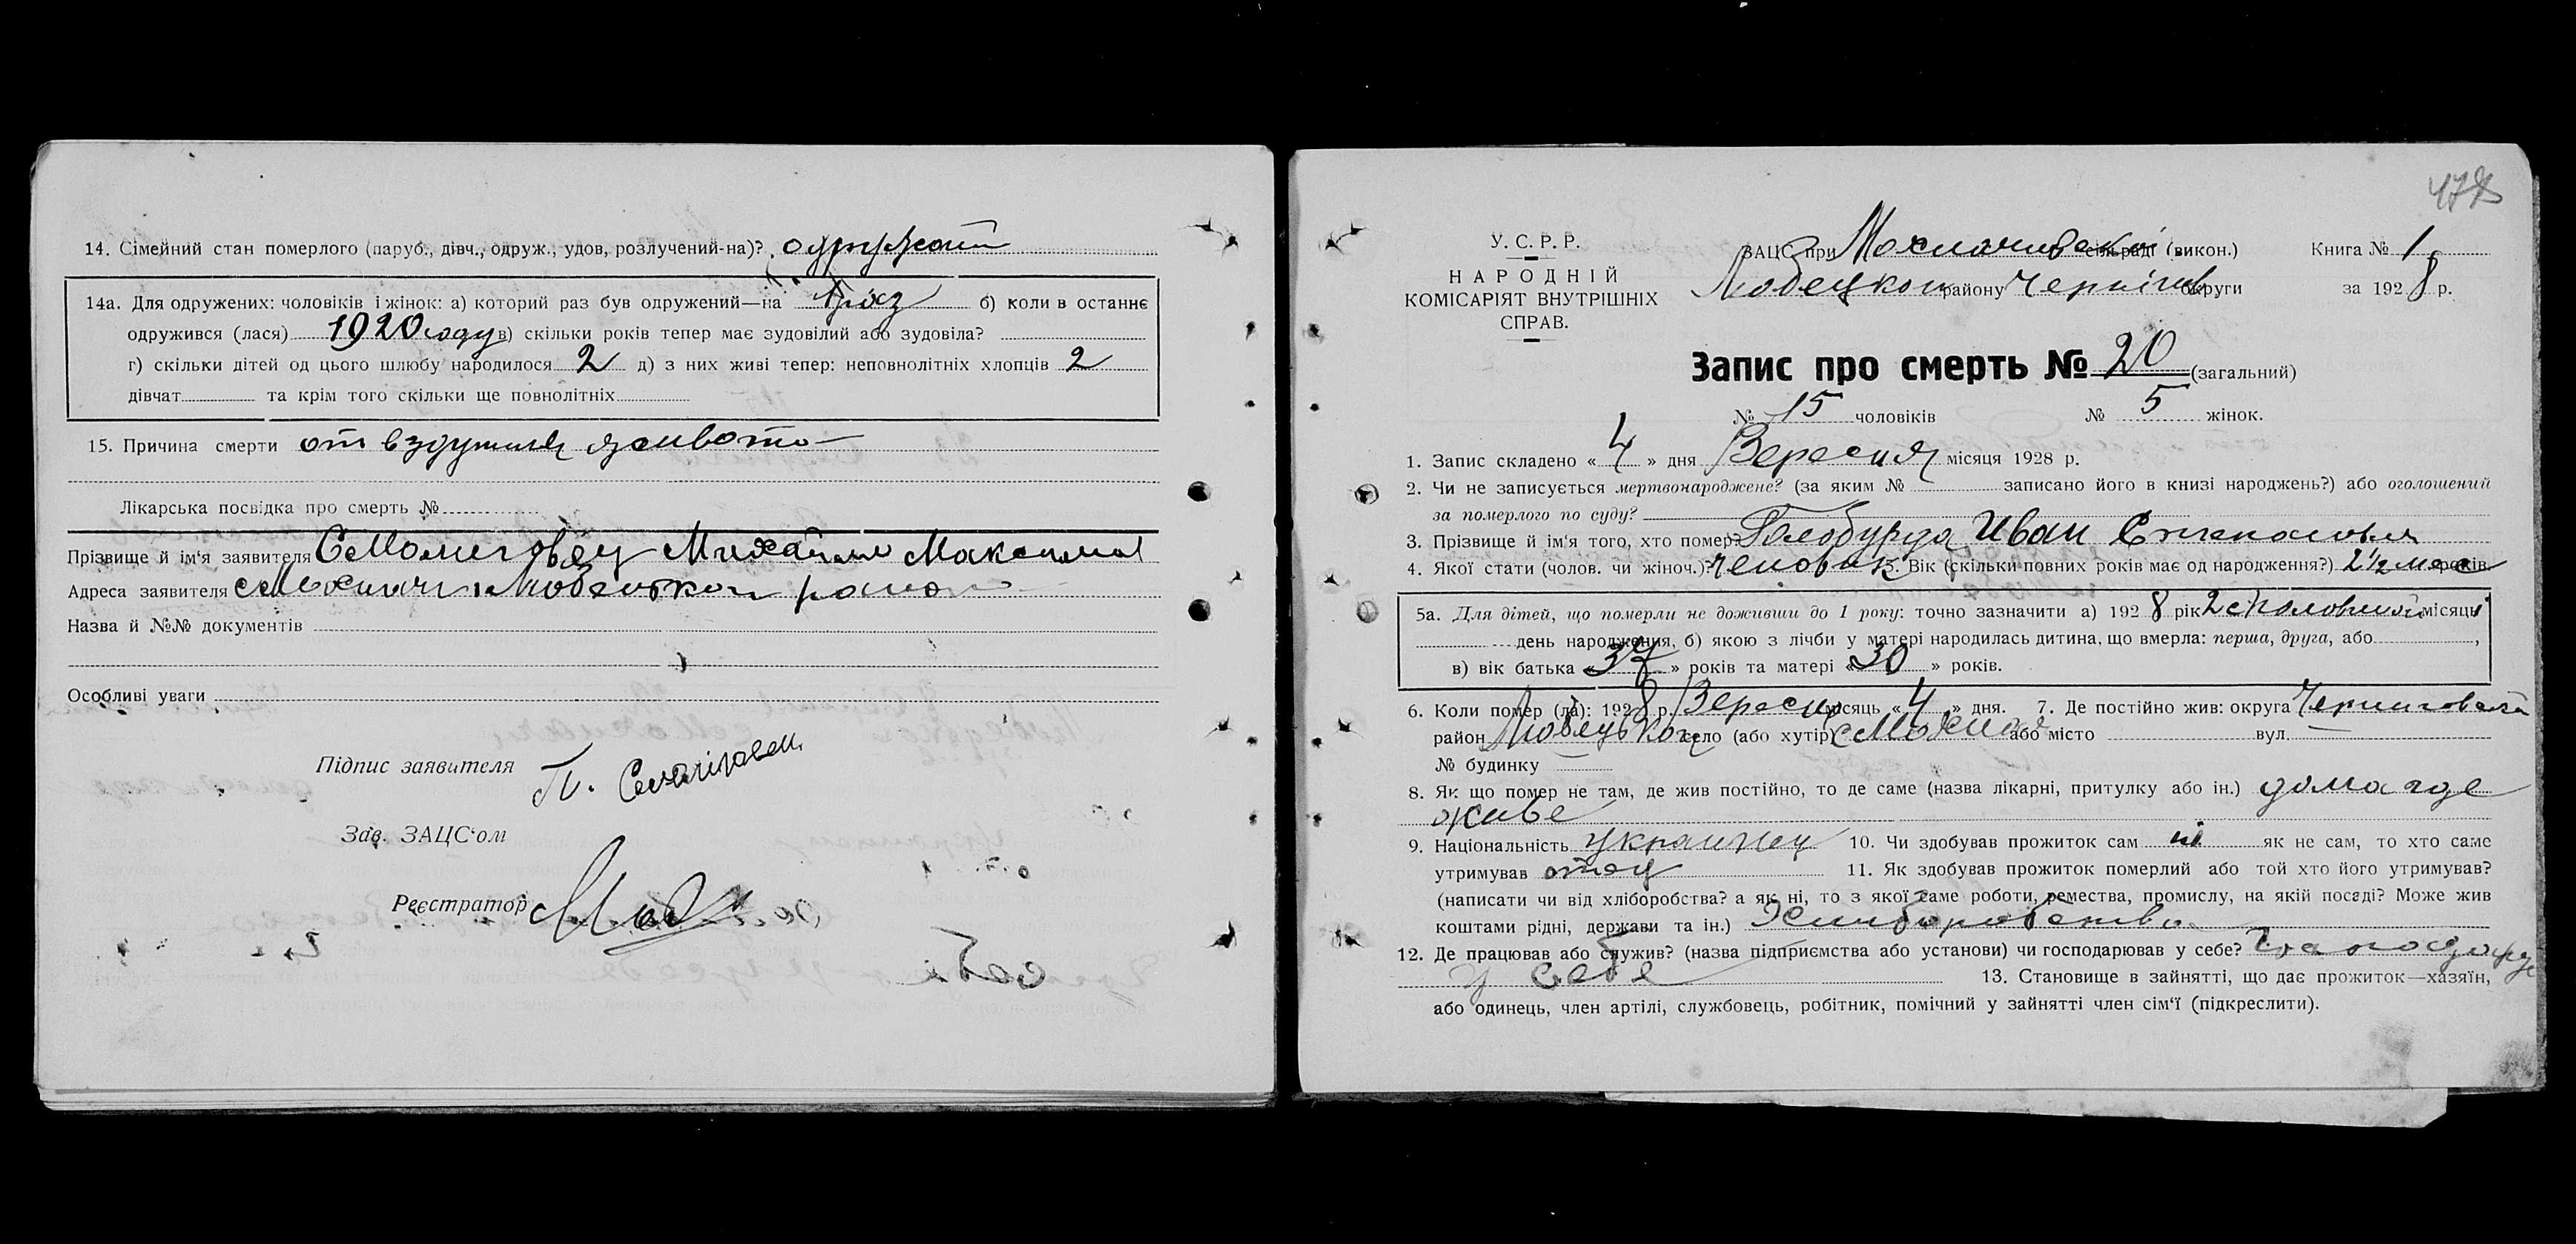 14. Сімейний стан померлого (паруб., дівч., одруж., удов, розлучений-на)? одружоти
14а. Для одружених: чоловіків і жінок: а) которий раз був одружений—на 1 раз б) коли в останнє
одружився (лася) 1920 году в) скільки років тепер має зудовілий або зудовіла?
г) скільки дітей од цього шлюбу народилося 2 д) з них живі тепер: неповнолітніх хлопців 2
дівчат та крім того скільки ще повнолітніх
15. Причина смерти от вздутия живота
Лікарська посвідка про смерть №
Прізвище й ім'я заявителя Михайло Максимов
Адреса заявителя с Мохначі Любецкого района
Назва й №№ документів
Особливі уваги
Підпис заявителя
Зав. ЗАЦС'ом
Реєстратор
478
У. С. Р. Р.
НАРОДНІЙ
КОМІСАРІЯТ ВНУТРІШНІХ
СПРАВ.
ЗАЦС при сільраді (викон.) Книга № 1
Любецкого району Чернігів округи за 1928 р.
Запис про смерть № 20 (загальний)
№ 15 чоловіків № 5 жінок.
1. Запис складено « 4 » дня Вересня місяця 1928 р.
2. Чи не записується мертвонароджене? (за яким № записано його в книзі народжень?) або оголошений
за померлого по суду?
3. Прізвище й ім'я того, хто помер? Голобурда Иван Степанович
4. Якої стати (чолов. чи жіноч.)? человік 5. Вік (скільки повних років має од народження?) 2½ мес років
5а. Для дітей, що померли не доживши до 1 року: точно зазначити а) 1928 рік 2 споловиной місяць
день народження, б) якою з лічби у матері народилась дитина, що вмерла: перша, друга, або ,
в) вік батька « 37 » років та матері « 30 » років.
6. Коли помер (ла): 1928 р. Вересня місяць « 4 » дня. 7. Де постійно жив: округа Черниговской
район Любецького село (або хутір) або місто вул.
№ будинку
8. Як що помер не там, де жив постійно, то де саме (назва лікарні, притулку або ін.) дома где
живе
9. Національність украинец 10. Чи здобував прожиток сам ні як не сам, то хто саме
утримував отец 11. Як здобував прожиток померлий або той хто його утримував?
(написати чи від хліборобства? а як ні, то з якої саме роботи, ремества, промислу, на якій посаді? Може жив
коштами рідні, держави та ін.) Хлиборобство
12. Де працював або служив? (назва підприємства або установи) чи господарював у себе?
у себе 13. Становище в зайнятті, що дає прожиток—хазяїн,
або одинець, член артілі, службовець, робітник, помічний у зайнятті член сім'ї (підкреслити).